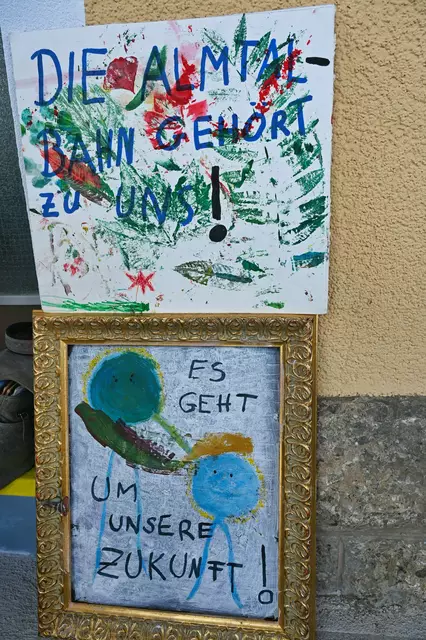 DIE ALMTAL-
BAHN GEHÖRT
ZU UNS!
ES
GEHT
UM
UNSERE
ZUKUNFT!